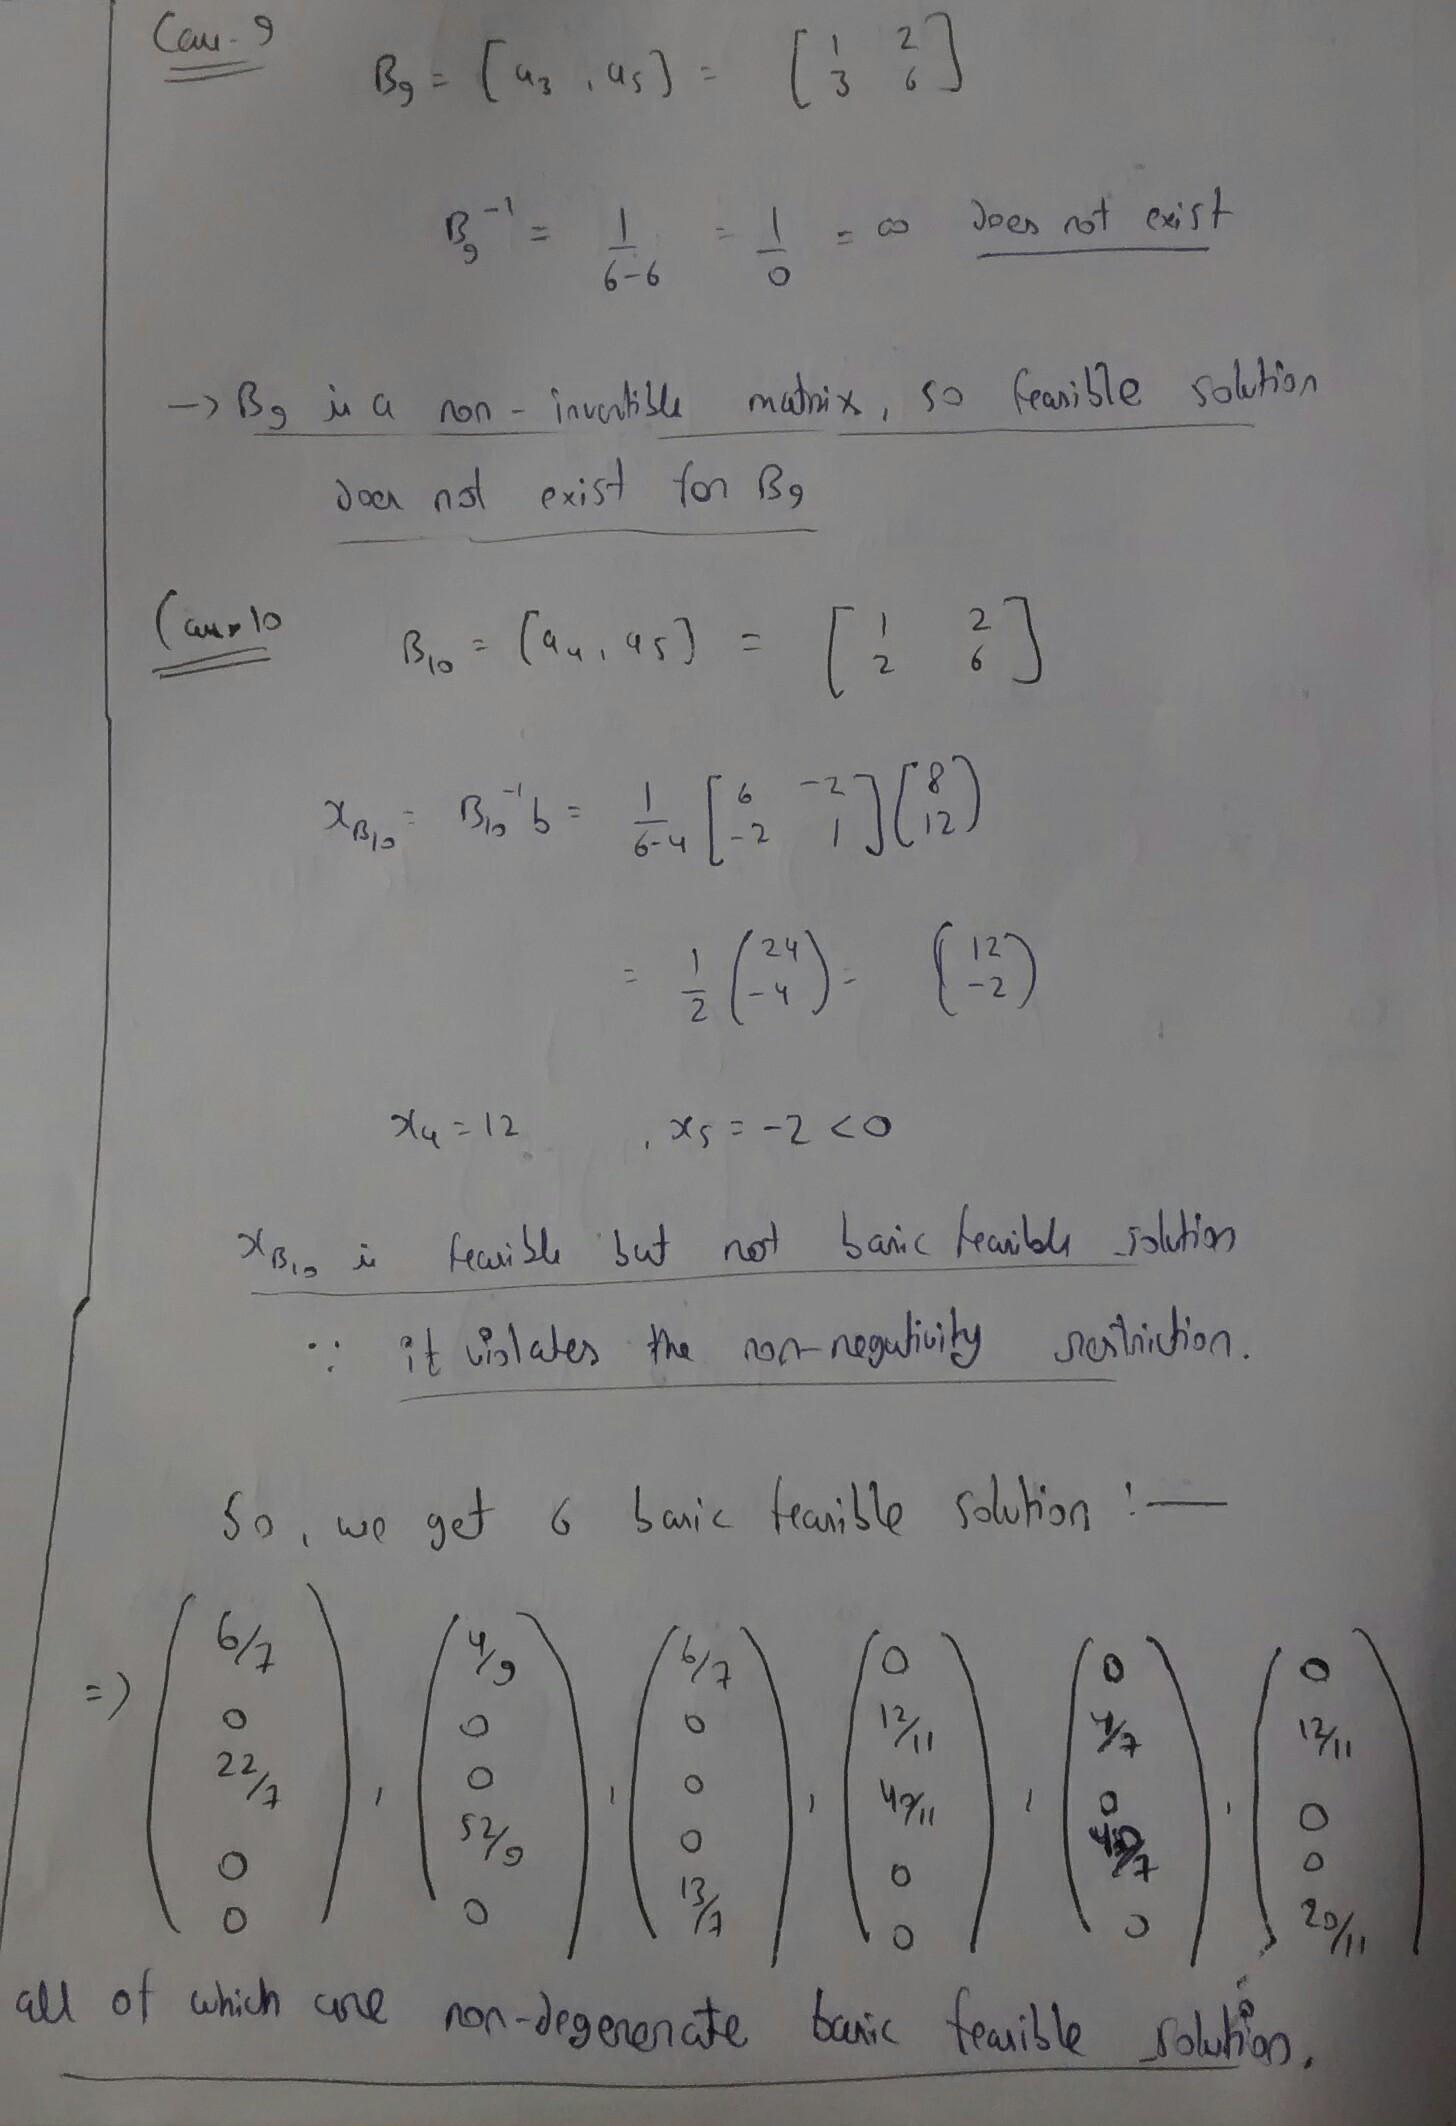 Case-9
B₉ = [a₃, a₅] = [1 2; 3 6]
B₉⁻¹ = 1/(6-6) = 1/0 = ∞ Does not exist
-> B₉ is a non-invertible matrix, so feasible solution
Does not exist for B₉
Case-10
B₁₀ = [a₄, a₅] = [1 2; 2 6]
x_B₁₀ = B₁₀⁻¹ b = 1/(6-4) [6 -2; -2 1] (8; 12)
= 1/2 (24; -4) = (12; -2)
x₄ = 12, x₅ = -2 < 0
x_B₁₀ is feasible but not basic feasible solution
∵ it violates the non-negativity restriction.
So, we get 6 basic feasible solution :—
=> (6/7; 0; 22/7; 0; 0), (4/9; 0; 0; 52/9; 0), (6/7; 0; 0; 0; 13/7), (0; 12/11; 40/11; 0; 0), (0; 4/7; 0; /7; 0), (0; 12/11; 0; 0; 20/11)
all of which are non-degenerate basic feasible solution.